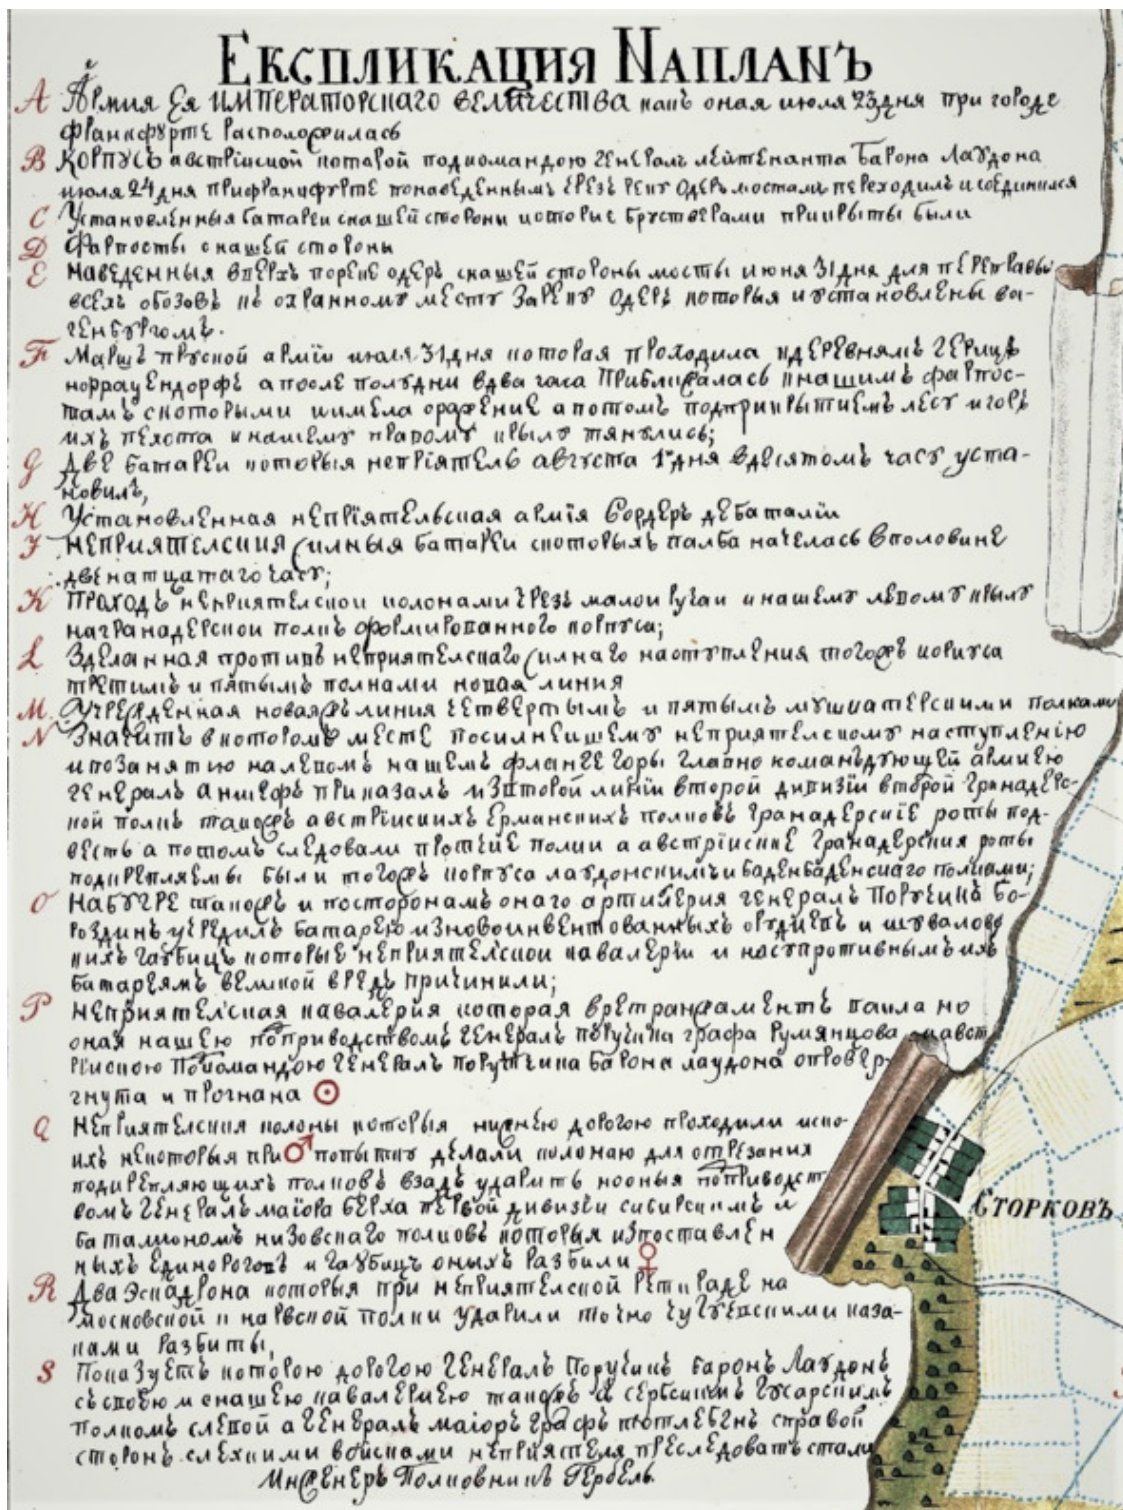 Експликация Nапланъ
A Армия Ея ИМПЕРАТОРСКАГО ВЕЛИЧЕСТВА какъ оная июля 23 дня при городе
Франкфурте расположилась
B Корпусъ австрійской которой подкомандою Генералъ лейтенанта Барона Лаудона
июля 24 дня прифранкфурте понаведеннымъ чрезъ реку Одеръ мостамъ переходилъ и соединился
C Установленныя батареи снашей стороны которые брустверами прикрыты были
D Фарпосты снашей стороны
E наведенныя вперхъ пореке одеръ снашей стороны мосты июня 31 дня для переправы
всехъ обозовъ къ охранному месту зареку Одеръ которыя и установлены ва-
генбургомъ.
F Маршъ пруской арміи июля 31 дня которая проходила кдеревнямъ Герицъ
а после полудни вдва часа приближалась кнашимъ фарпос-
тамъ скоторыми и имела сражение а потомъ подприкрытиемъ лесу и горъ
ихъ пехота кнашему правому крылу тянулись;
G Две батареи которыя непріятель августа 1 дня вдесятомъ часу уста-
новилъ,
H Установленная непріятельская армія вордеръ дебаталіи
J Неприятелския силныя батареи скоторыхъ палба началась вполовине
двенатцатаго часу;
K Проходъ неприятелской колонами чрезъ малой ручаи кнашему левому крылу
награнадерской полкъ формированного корпуса;
L Зделанная противъ неприятелскаго силнаго наступления тогожъ корпуса
третимъ и пятымъ полками новая линия
M Учрежденная новаяжъ линия четвертымъ и пятымъ мушкатерскими полками
N Значитъ вкоторомъ месте посилнейшему неприятелскому наступленію
ипозанятию налевомъ нашемъ фланге горы главно командующей армиею
Генералъ Аншефъ приказалъ изъвторой линіи второй дивизіи второй Гранадерс-
кой полкъ такожъ австрійскихъ Ерманскихъ полковъ Гранадерскіе роты под-
весть а потомъ следовали протчие полки а австрійские Гранадерския роты
подкрепляемы были тогожъ корпуса лаудонскимъ и баденбаденскаго полками;
O НАБУГРЕ такожъ и постороnамъ онаго артилерия генералъ Поручикъ Бо-
роздинъ учредилъ батарею изновоинвентованныхъ орудиевъ и шувалово
кихъ гаубицъ которые неприятелской кавалеріи и насупротивнымъ ихъ
батареямъ великой вредъ причинили;
P Неприятелская кавалерия которая вретранжаментъ впала но
оная нашею поприводствомъ Генералъ поручика графа Румянцова и австр
рійскою покомандою генералъ порутчика барона лаудона опровер-
гнута и прогнана ☉
Q Неприятелския колоны которыя нижнею дорогою проходили изко-
ихъ некоторыя при ♂ попытку делали колонаю для отрезания
подкрепляющихъ полковъ взадъ ударить нооныя поприводст
вомъ Генералъ маіора берха первой дивизіи сибирскимъ и
баталиономъ низовскаго полковъ которыя изпоставлен
ныхъ единороговъ и гаубицъ оныхъ разбили ♀
R Два Эскадрона которыя при неприятелской ретираде на
московской и нарвской полки ударили точно чугуевскими каза-
ками разбиты,
S Показуетъ которою дорогою Генералъ Поручикъ баронъ Лаудонъ
съ своею и снашею кавалериею такожъ и сербскимъ Гусарскимъ
полкомъ слевой а Генералъ маіор Графъ тотлебенъ справой
сторонъ слехкими войсками неприятеля преследовать стали
Инженеръ Полковникъ Гербель.
Сторковъ